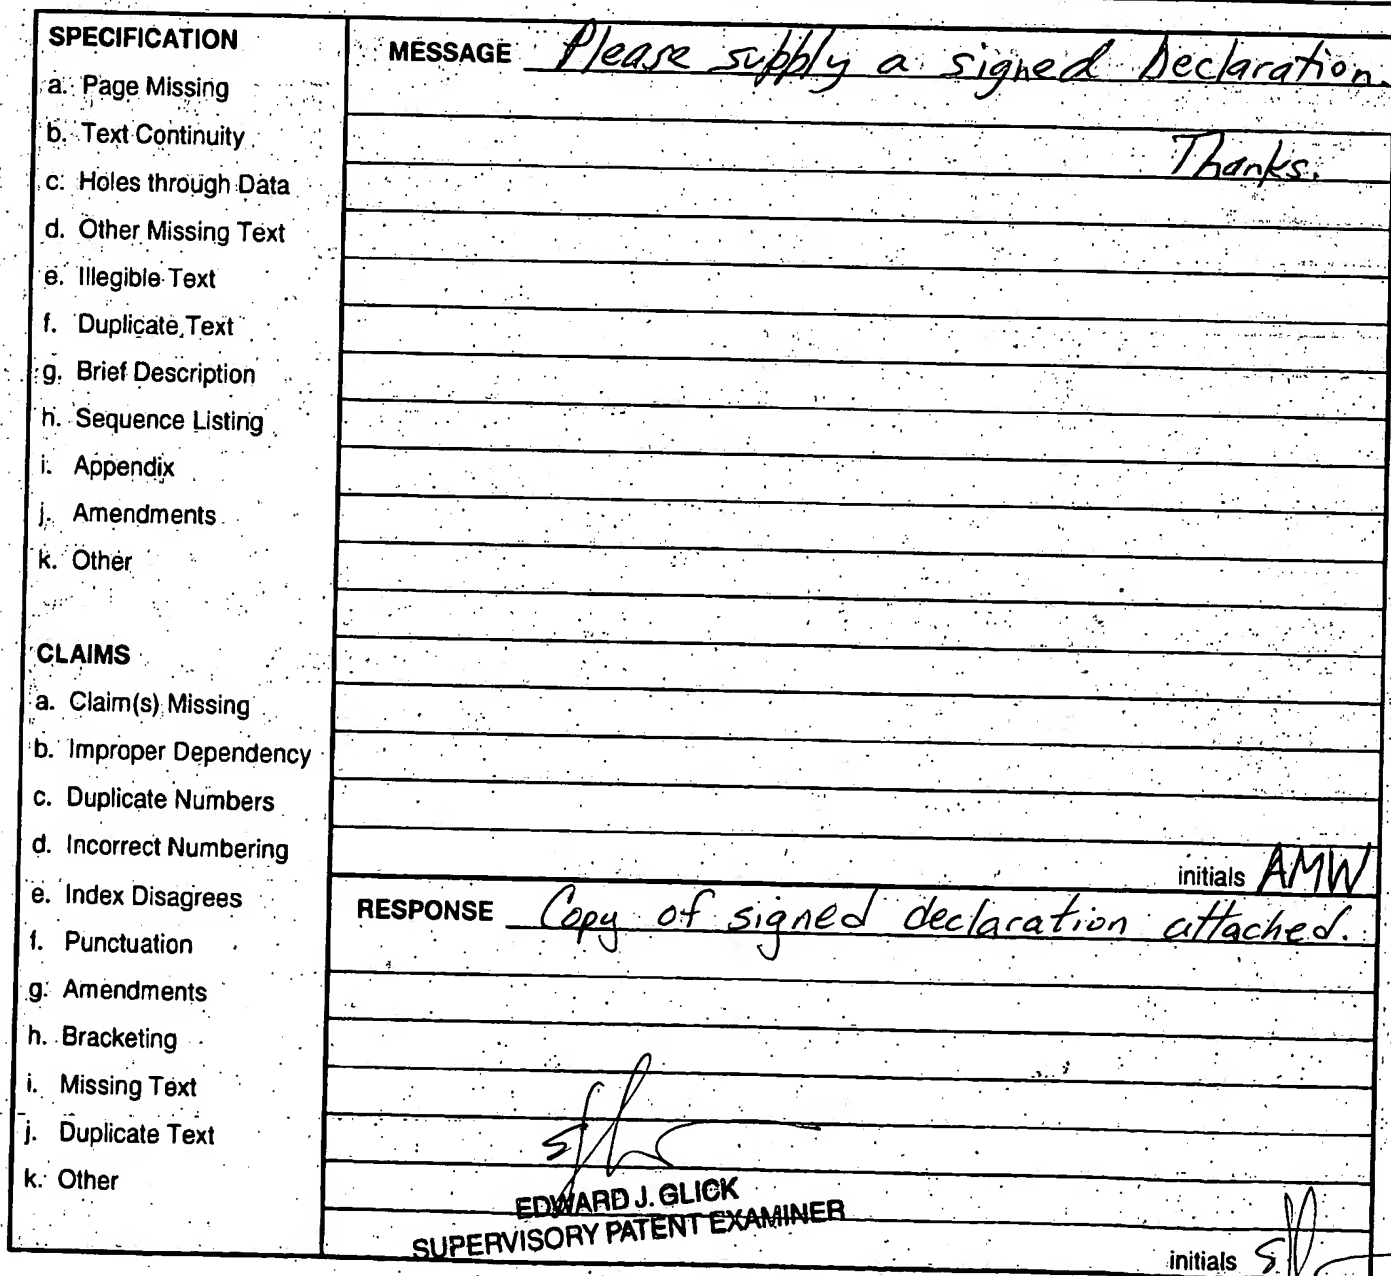 SPECIFICATION
a. Page Missing
b. Text Continuity
c. Holes through Data
d. Other Missing Text
e. Illegible Text
f. Duplicate Text
g. Brief Description
h. Sequence Listing
i. Appendix
j. Amendments
k. Other
CLAIMS
a. Claim(s) Missing
b. Improper Dependency
c. Duplicate Numbers
d. Incorrect Numbering
e. Index Disagrees
f. Punctuation
g. Amendments
h. Bracketing
i. Missing Text
j. Duplicate Text
k. Other
MESSAGE Please supply a signed Declaration.
Thanks.
initials AMW
RESPONSE Copy of signed declaration attached.
EDWARD J. GLICK
SUPERVISORY PATENT EXAMINER
initials